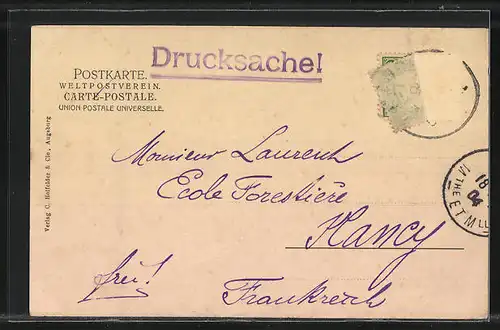 Drucksache!
POSTKARTE.
WELTPOSTVEREIN.
CARTE-POSTALE.
UNION POSTALE UNIVERSELLE.
Verlag C. Hoffelder & Cie., Augsburg
Monsieur Laurent
Ecole Forestière
Nancy
frei!
Frankreich
18
04